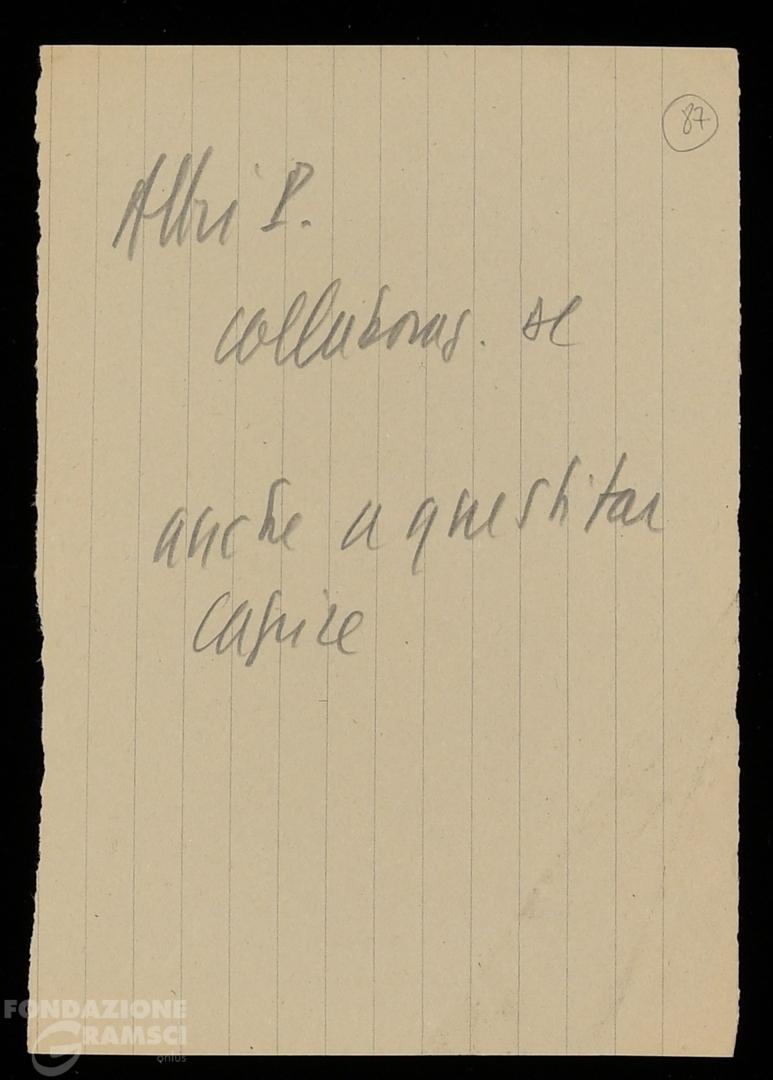 87
Altri P.
collaboraz. se
anche a questi tar
capire
FONDAZIONE
GRAMSCI
onlus